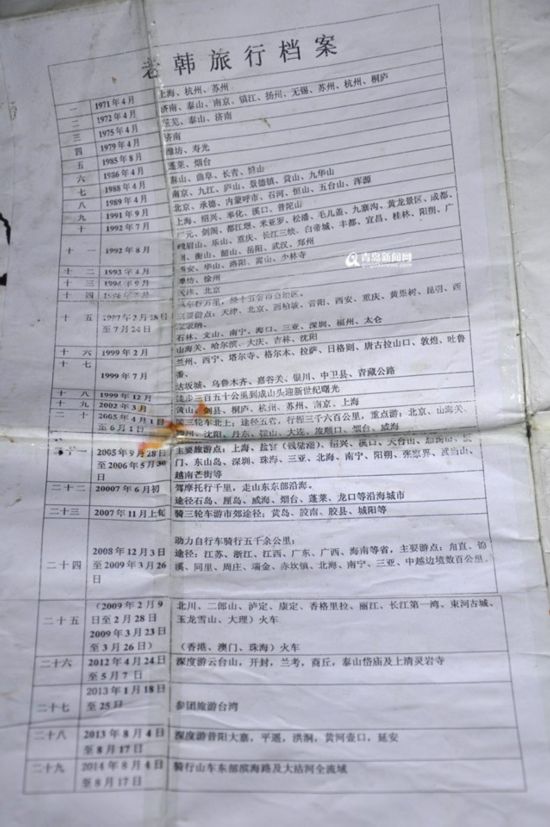 老韩旅行档案
一 1971年4月 上海、杭州、苏州
二 1972年4月 济南、泰山、南京、镇江、扬州、无锡、苏州、杭州、桐庐
三 1975年4月 莱芜、泰山、济南
四 1979年4月 济南
五 1985年8月 潍坊、寿光
六 1986年4月 蓬莱、烟台
七 1988年4月 泰山、曲阜、长青
八 1989年4月 南京、九江、庐山、景德镇、黄山、九华山
九 1991年9月 北京、承德、内蒙呼市、石河、恒山、五台山、浑源
十 1992年7月 上海、绍兴、奉化、溪口、普陀山
十一 1992年8月 广元、剑阁、都江堰、米亚罗、松潘、毛儿盖、九寨沟、黄龙景区、成都、
峨眉山、乐山、重庆、长江三峡、白帝城、丰都、宜昌、桂林、阳朔、广
州、衡山、韶山、岳阳、武汉、郑州
十二 1993年4月 西安、华山、洛阳、嵩山、少林寺
十三 潍坊、徐州
十四 天津、北京
十五 1997年2月18日
至7月24日
主要游点:天津、北京、西柏坡、昔阳、西安、重庆、黄果树、昆明、西
双版纳、
石林、文山、南宁、海口、三亚、深圳、福州、太仓
十六 1999年2月 山海关、哈尔滨、大庆、吉林、沈阳
十七 1999年7月 兰州、西宁、塔尔寺、格尔木、拉萨、日格则、唐古拉山口、敦煌、吐鲁
番、
达坂城、乌鲁木齐、嘉谷关、银川、中卫县、青藏公路
十八 1999年12月 徒步三百五十公里到成山头迎新世纪曙光
十九 2002年3月 黄山、歙县、桐庐、杭州、苏州、南京、上海
二十 2005年4月1日
至6月1日
骑三轮车北上:途经五省,行程三千六百公里,重点游:北京、山海关、
锦州、沈阳、丹东、鞍山、大连、旅顺口、烟台、威海
二十一 2005年9月28日
至2006年5月30日
主要旅游点:上海、盐官(钱塘潮)、绍兴、溪口、天台山、
门、东山岛、深圳、珠海、三亚、北海、南宁、阳朔、张家界、武当山、
越南芒街等
二十二 20007年6月初 驾摩托行千里,走山东东部沿海。
途径石岛、厘岛、威海、烟台、蓬莱、龙口等沿海城市
二十三 2007年11月上旬 骑三轮车游市郊途径:黄岛、胶南、胶县、城阳等
二十四 2008年12月3日
至2009年3月26
日
助力自行车骑行五千余公里:
途径:江苏、浙江、江西、广东、广西、海南等省,主要游点:甪直、
溪、同里、周庄、瑞金、赤坎镇、北海、南宁、三亚、中越边境数百公里。
二十五 (2009年2月9
日至2月28日
2009年3月23日
至3月26日)
北川、二郎山、泸定、康定、香格里拉、丽江、长江第一湾、束河古城、
玉龙雪山、大理)火车
(香港、澳门、珠海)火车
二十六 2012年4月24日
至5月7日
深度游云台山,开封,兰考,商丘,泰山岱庙及上清灵岩寺
二十七 2013年1月18日
至25日
参团旅游台湾
二十八 2013年8月4日
至8月17日
深度游昔阳大寨,平遥,洪洞,黄河壶口,延安
二十九 2014年8月4日
至8月17日
骑行山车东部滨海路及大沽河全流域
青岛新闻网